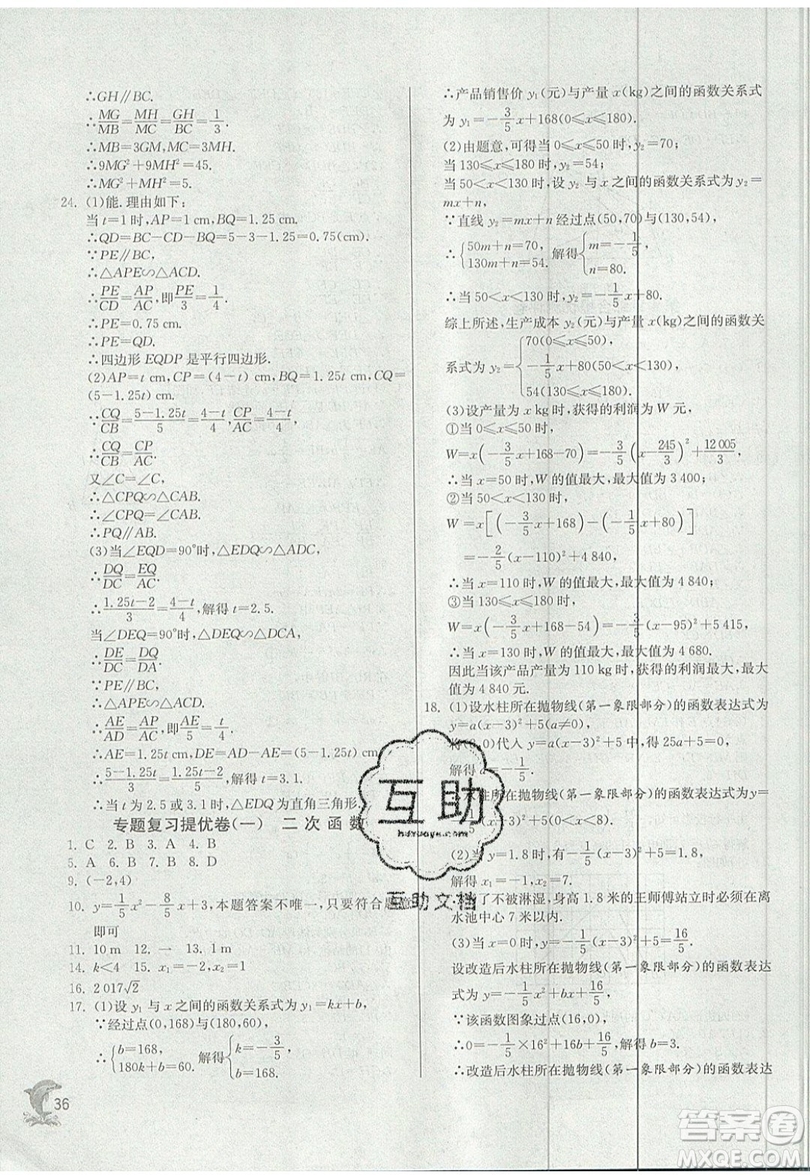 ∴GH∥BC.
∴MG/MB=MH/MC=GH/BC=1/3.
∴MB=3GM,MC=3MH.
∴9MG²+9MH²=45.
∴MG²+MH²=5.
24. (1)能.理由如下:
当t=1时,AP=1 cm,BQ=1.25 cm.
∴QD=BC-CD-BQ=5-3-1.25=0.75(cm).
∵PE∥BC,
∴△APE∽△ACD.
∴PE/CD=AP/AC,即PE/3=1/4.
∴PE=0.75 cm.
∴PE=QD.
∴四边形EQDP是平行四边形.
(2)AP=t cm,CP=(4-t) cm,BQ=1.25t cm,CQ=
(5-1.25t)cm.
∵CQ/CB=(5-1.25t)/5=(4-t)/4,CP/AC=(4-t)/4,
∴CQ/CB=CP/AC.
又∠C=∠C,
∴△CPQ∽△CAB.
∴∠CPQ=∠CAB.
∴PQ∥AB.
(3)当∠EQD=90°时,△EDQ∽△ADC,
∴DQ/DC=EQ/AC.
∴(1.25t-2)/3=(4-t)/4,解得t=2.5.
当∠DEQ=90°时,△DEQ∽△DCA,
∴DE/DC=DQ/DA.
∵PE∥BC,
∴AE/AD=AP/AC,即AE/5=t/4.
∴AE=1.25t,DE=AD-AE=5-1.25t.
∴(5-1.25t)/3=(1.25t-2)/5,解得t=3.1.
∴当t为2.5或3.1时,△EDQ为直角三角形.
专题复习提优卷(一) 二次函数
1. C 2. B 3. A 4. B
5. A 6. B 7. B 8. D
9. (-2,4)
10. y=1/5x²-8/5x+3,本题答案不唯一,只要符合题意
即可
11. 10 m 12. 一 13. 1 m
14. k<4 15. x₁=-1,x₂=2
16. 2 017√2
17. (1)设y₁与x之间的函数关系式为y₁=kx+b,
∵经过点(0,168)与(180,60),
∴{b=168, 180k+b=60. 解得{k=-3/5, b=168.
∴产品销售价y₁(元)与产量x(kg)之间的函数关系式
为y₁=-3/5x+168(0≤x≤180).
(2)由题意,可得当0≤x≤50时,y₂=70;
当130≤x≤180时,y₂=54;
当50<x<130时,设y₂与x之间的函数关系式为y₂=
mx+n,
∵直线y₂=mx+n经过点(50,70)与(130,54),
∴{50m+n=70, 130m+n=54. 解得{m=-1/5, n=80.
∴当50<x<130时,y₂=-1/5x+80.
综上所述,生产成本y₂(元)与产量x(kg)之间的函数关
系式为y₂={70(0≤x≤50), -1/5x+80(50<x<130), 54(130≤x≤180).
(3)设产量为x kg时,获得的利润为W元,
①当0≤x≤50时,
W=x(-3/5x+168-70)=-3/5(x-245/3)²+12 005/3,
∴当x=50时,W的值最大,最大值为3 400;
②当50<x<130时,
W=x[(-3/5x+168)-(-1/5x+80)]
=-2/5(x-110)²+4 840,
∴当x=110时,W的值最大,最大值为4 840;
③当130≤x≤180时,
W=x(-3/5x+168-54)=-3/5(x-95)²+5 415,
∴当x=130时,W的值最大,最大值为4 680.
因此当该产品产量为110 kg时,获得的利润最大,最大
值为4 840元.
18. (1)设水柱所在抛物线(第一象限部分)的函数表达式为
y=a(x-3)²+5(a≠0),
将(8,0)代入y=a(x-3)²+5中,得25a+5=0,
解得a=-1/5.
∴水柱所在抛物线(第一象限部分)的函数表达式为
(2)当y=1.8时,有-1/5(x-3)²+5=1.8,
了不被淋湿,身高1.8米的王师傅站立时必须在离
水池中心7米以内.
(3)当x=0时,y=-1/5(x-3)²+5=16/5.
设改造后水柱所在抛物线(第一象限部分)的函数表达
式为y=-1/5x²+bx+16/5,
∵该函数图象过点(16,0),
∴0=-1/5×16²+16b+16/5,解得b=3.
∴改造后水柱所在抛物线(第一象限部分)的函数表达
互助
hdzuoye.com
互助文档
36
答案圈
MXQE.COM